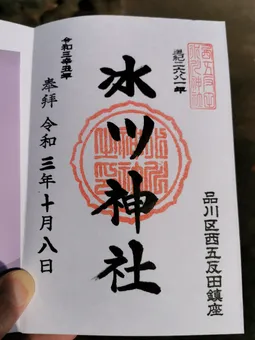 品川区西五反田鎮座
皇紀二六八一年
氷川神社
令和三辛丑年
奉拝 令和三年十月八日